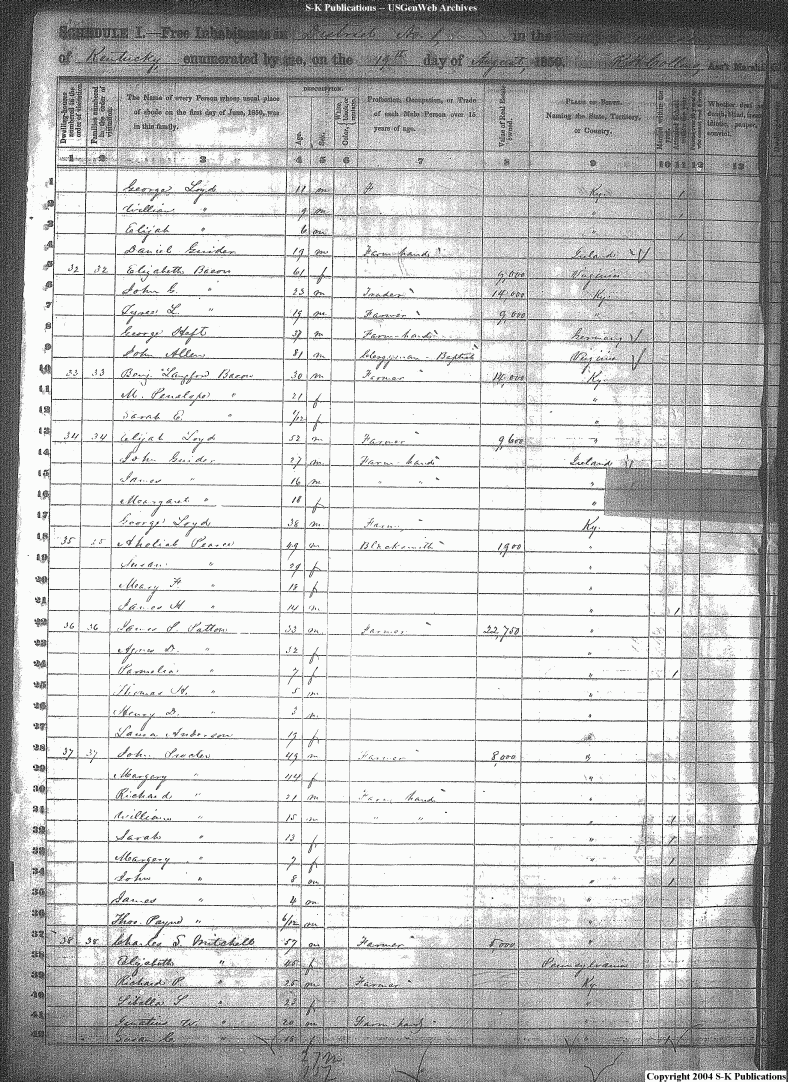 S-K Publications – USGenWeb Archives
SCHEDULE I.—Free Inhabitants in District No. 1, in the
of Kentucky enumerated by me, on the 19th day of August, 1850. Ass't Marshal
Dwelling-houses numbered in the order of visitation. Families numbered in the order of visitation. The Name of every Person whose usual place of abode on the first day of June, 1850, was in this family. DESCRIPTION. Age. Sex. Color, Profession, Occupation, or Trade of each Male Person over 15 years of age. Value of Real Estate owned. PLACE OF BIRTH. Naming the State, Territory, or Country. Whether deaf
1 2 3 4 5 6 7 8 9 10 11 12 13
1 George Loyd 11 m Ky. 1
2 William " 9 m " 1
3 Elijah " 6 m " 1
4 Daniel Guider 19 m Farm-hand Ireland
5 32 32 Elizabeth Bacon 61 f 9,000 Virginia
6 John G. " 23 m Trader 14,000 Ky.
7 L. " 19 m Farmer 9,000 "
8 George Heft 37 m Farm-hand Germany
9 John Allen 81 m Clergyman - Baptist Virginia
10 33 33 Benj. Langford Bacon 30 m Farmer 14,000 Ky.
11 M. Penelope " 21 f "
12 Sarah E. " /12 f "
13 34 34 Elijah Loyd 52 m Farmer 9,600 "
14 John Guider 27 m Farm-hand Ireland
15 James " 16 m " " "
16 Margaret " 18 f "
17 George Loyd 38 m Farm Ky.
18 35 35 Aholiab Pearce 49 m Blacksmith 1900 "
19 Susan " 49 f "
20 Mary F " 18 f "
21 James H " 14 m " 1
22 36 36 James S. Patton 33 m Farmer 22,750 "
23 Agnes D. " 32 f "
24 Pamelia " 7 f " 1
25 Thomas H. " 5 m "
26 Henry D. " 3 m "
27 Laura Anderson 19 f "
28 37 37 John Procter 49 m Farmer 8,000 "
29 Margery " 44 f "
30 Richard " 21 m Farm-hand "
31 William " 15 m " " " 1
32 Sarah " 13 f " 1
33 Margery " 7 f " 1
34 John " 8 m " 1
35 James " 4 m "
36 Thos. Payne " 6/12 m "
37 38 38 Charles S. Mitchell 57 m Farmer 5,000 "
38 Elizabeth " 45 f Pennsylvania
39 Richard P. " 25 m Farmer Ky
40 Sibella S. " 22 f "
41 Ignatius W. " 20 m Farm-hand "
42 Susan C. " 18 f "
27 m
Copyright 2004 S-K Publications